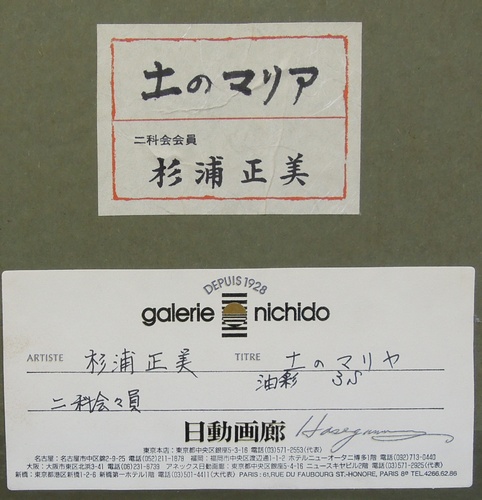 土のマリア
二科会会員
杉浦正美
DEPUIS 1928
galerie nichido
ARTISTE 杉浦正美 TITRE 土のマリヤ
油彩 3S
二科会々員
日動画廊
東京本店：東京都中央区銀座5-3-16 電話(03)571-2553(代表)
名古屋：名古屋市中区錦2-9-25 電話(052)211-1878 福岡：福岡市中央区渡辺通1-1-2 ホテルニューオータニ博多1階 電話(092)713-0440
大阪：大阪市東区北浜3-41 電話(06)231-6739 アネックス日動画廊：東京都中央区銀座5-4-16 ニュースキヤビル2階 電話(03)571-2925(代表)
新橋：東京都港区新橋1-2-6 新橋第一ホテル1階 電話(03)501-4411(大代表) PARIS : 61,RUE DU FAUBOURG ST.-HONORE, PARIS 8e TEL.4266,62.86